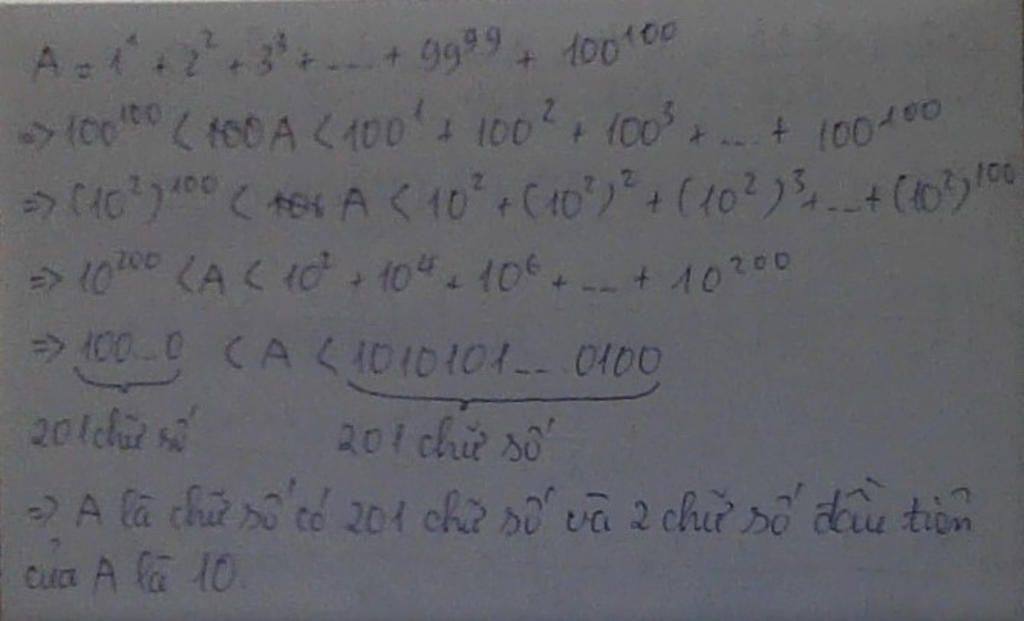 A = 1¹ + 2² + 3³ + .... + 99⁹⁹ + 100¹⁰⁰
=> 100¹⁰⁰ < A < 100¹ + 100² + 100³ + ... + 100¹⁰⁰
=> (10²)¹⁰⁰ < A < 10² + (10²)² + (10²)³ + ... + (10²)¹⁰⁰
=> 10²⁰⁰ < A < 10² + 10⁴ + 10⁶ + ... + 10²⁰⁰
=> 100...0 < A < 1010101....0100
201 chữ số 201 chữ số
=> A là chữ số có 201 chữ số và 2 chữ số đầu tiên
của A là 10.